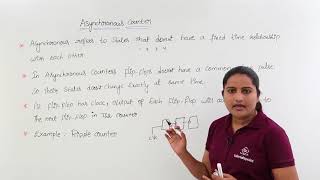 Asynchronous Counter
* Asynchronous refers to states that doesnt have a fixed time relationship
with each other.
* In Asynchronous Counters flip-flops doesnt have a common clk pulse
so their states doesnt change exactly at same time.
* 1st flip-flop has clock, output of each flip-flop will act as
the next flip-flop in the counter.
* Example: Ripple counter
clk